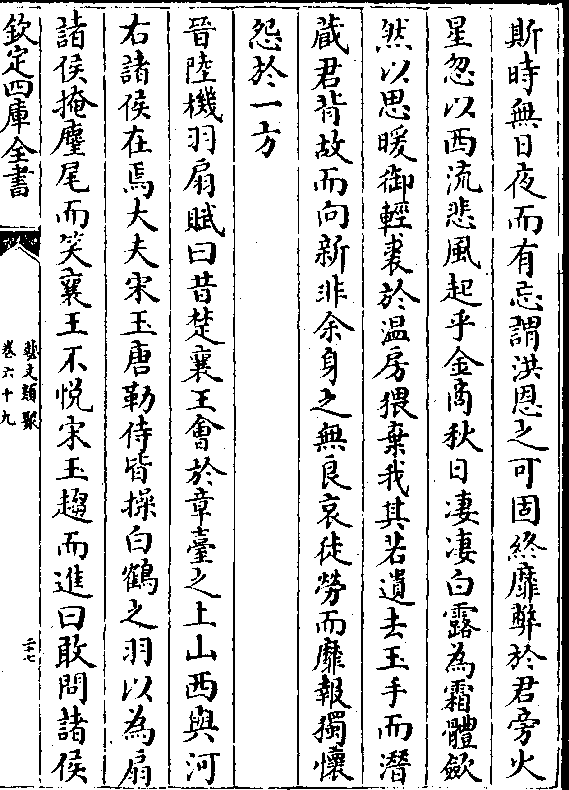 斯時無日夜而有忘謂洪恩之可固終靡弊於君旁火
星忽以西流悲風起乎金商秋日凄凄白露為霜體歛
然以思暖御輕裘於温房猥棄我其若遺去玉手而潛
蔵君背故而向新非余身之無良哀徒勞而靡報獨懷
怨於一方
晉陸機羽扇賦曰昔楚襄王會於章臺之上山西與河
右諸侯在焉大夫宋玉唐勒侍皆操白鶴之羽以為扇
諸侯掩麈尾而笑襄王不悅宋玉趨而進曰敢問諸侯
欽定四庫全書
藝文類聚
卷六十九
二十七